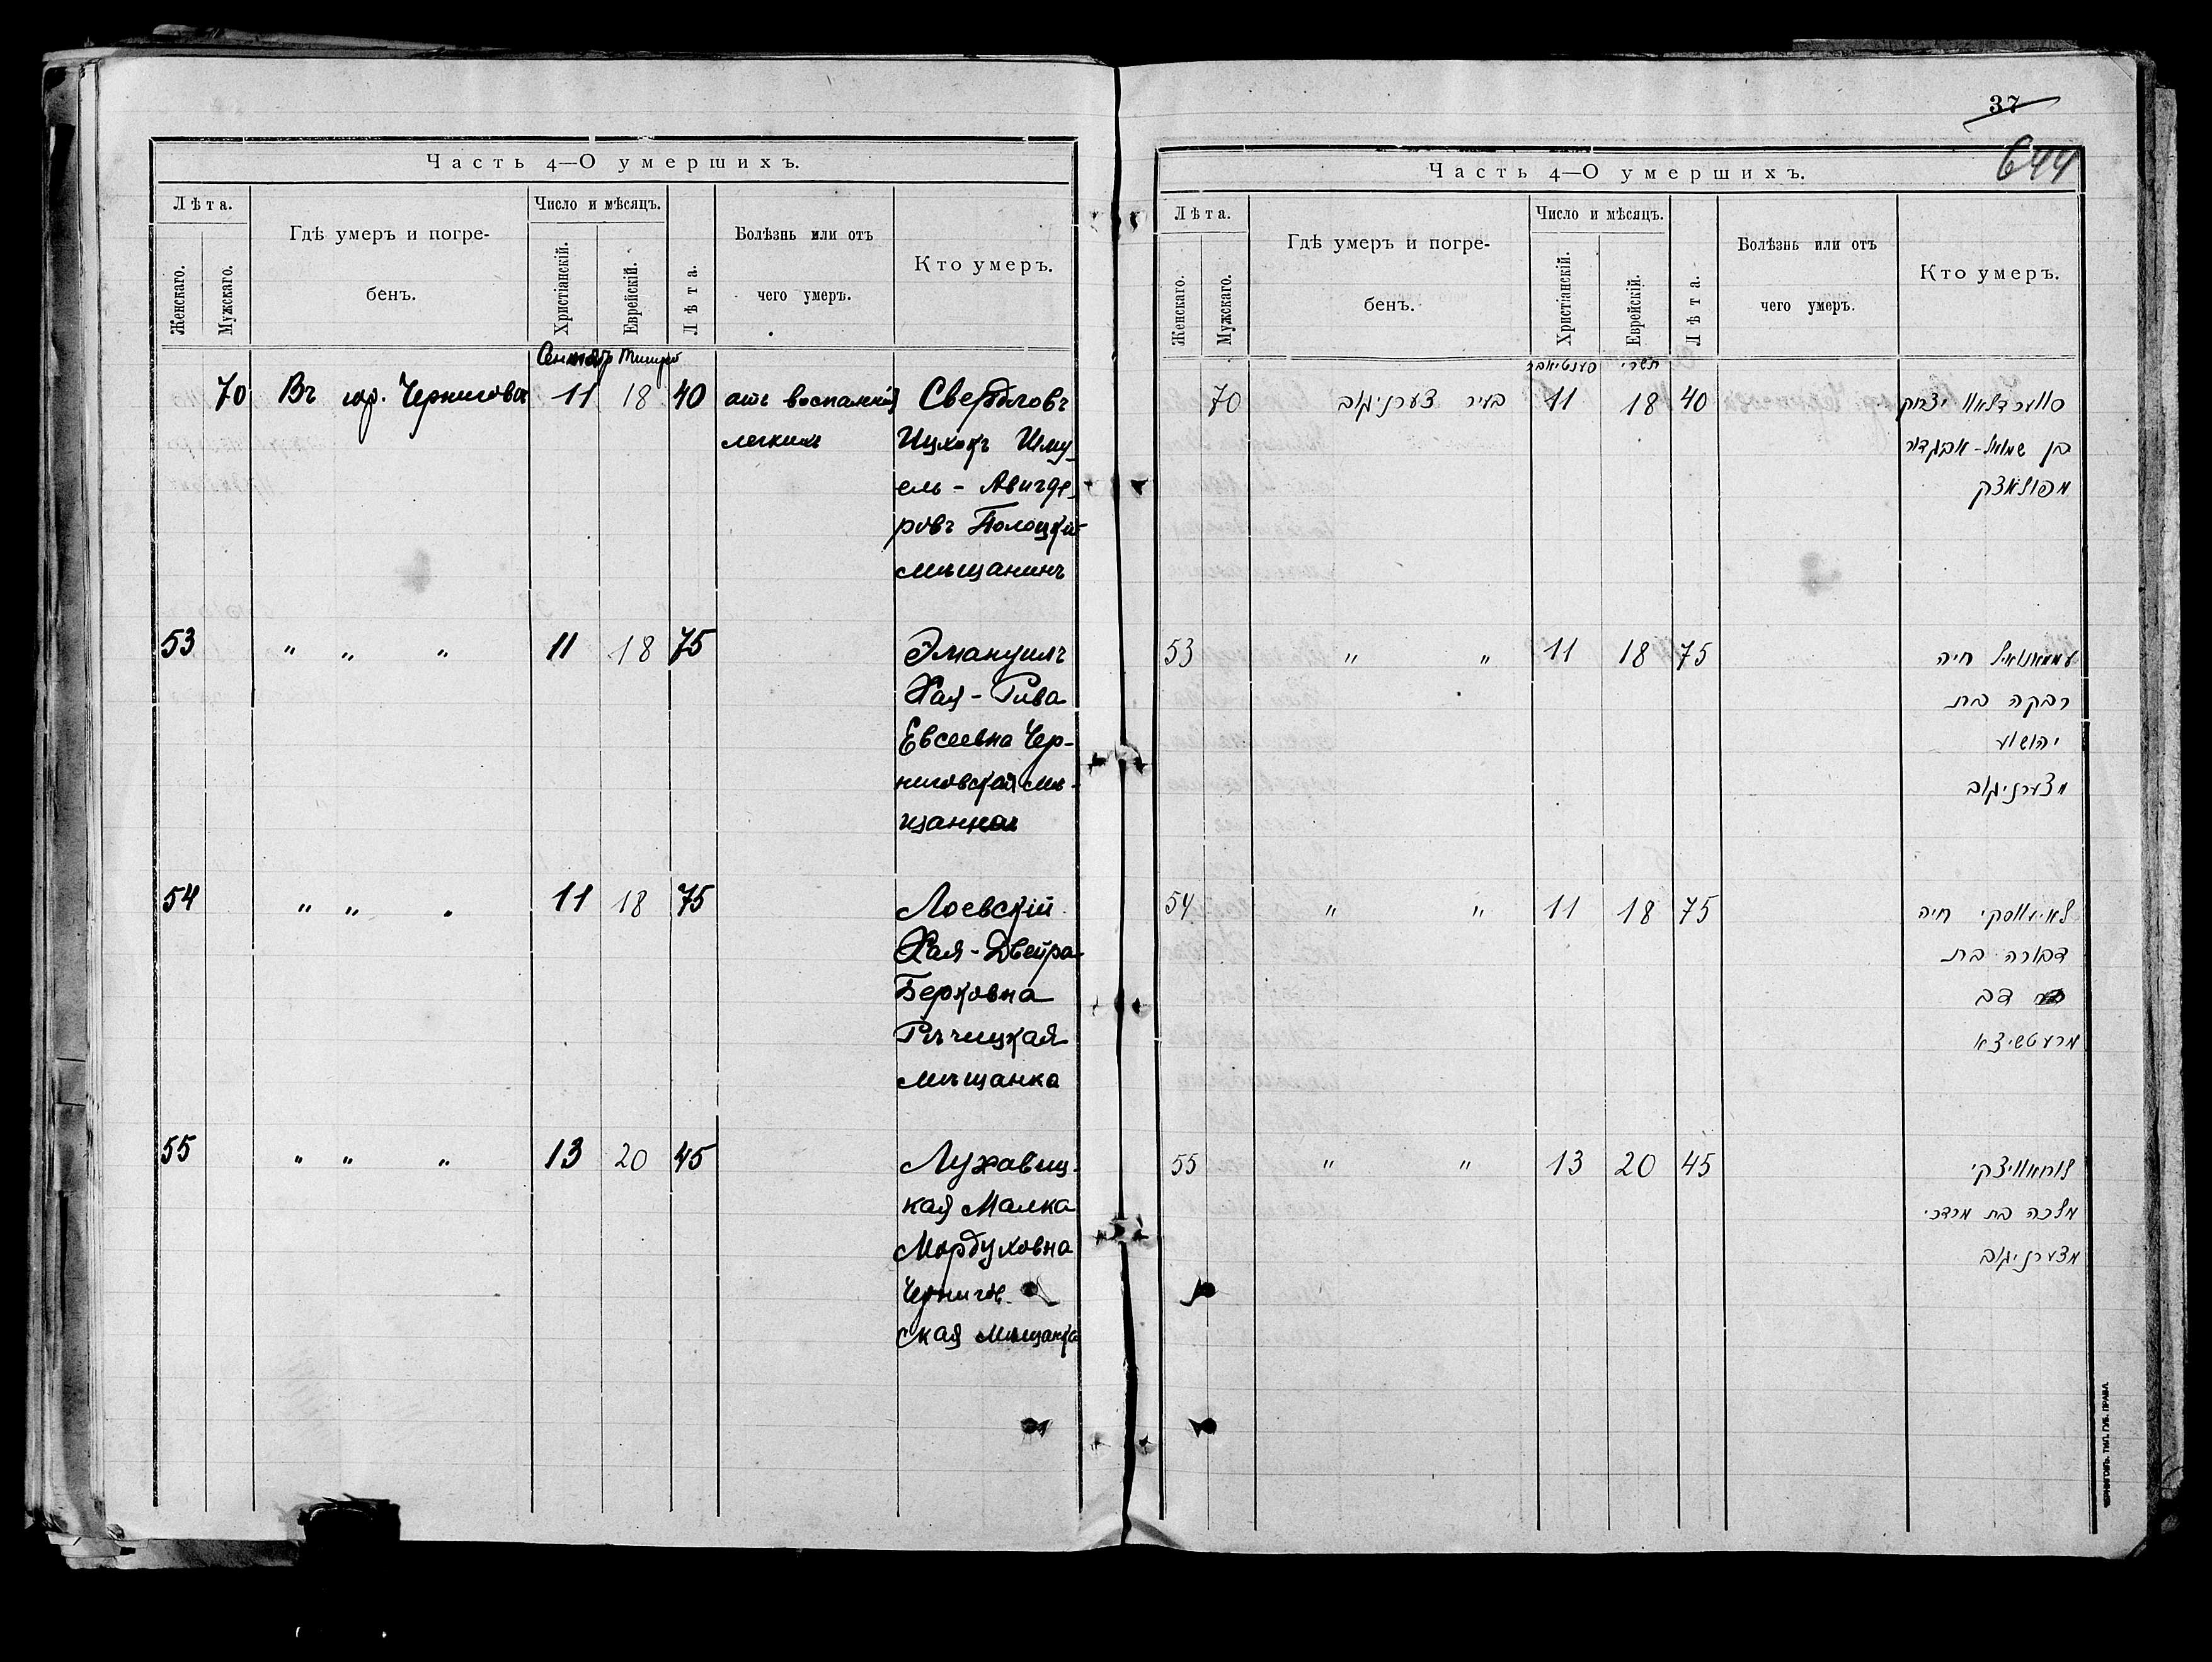 Часть 4—О умершихъ.
Лѣта.
Женскаго.
Мужскаго.
Гдѣ умеръ и погре-
бенъ.
Число и мѣсяцъ.
Христіанскій.
Еврейскій.
Лѣта.
Болѣзнь или отъ
чего умеръ.
Кто умеръ.
Сентябр Тишри
70 Въ гор. Черниговѣ 11 18 40 отъ воспаленія Свердловъ
легкихъ Ицхокъ Шму-
ель - Авигдо-
ровъ Полоцкій
мѣщанинъ
53 " " " 11 18 75 Эмануилъ
Хая - Рива
Евсеевна Чер-
ниговская мѣ-
щанка
54 " " " 11 18 75 Лоевскій
Хая - Двейра
Берковна
Рѣчицкая
мѣщанка
55 " " " 13 20 45 Лухавиц-
кая Малка
Мордуховна
Чернигов-
ская мѣщанка
37
644
Часть 4—О умершихъ.
Лѣта.
Женскаго.
Мужскаго.
Гдѣ умеръ и погре-
бенъ.
Число и мѣсяцъ.
Христіанскій.
Еврейскій.
Лѣта.
Болѣзнь или отъ
чего умеръ.
Кто умеръ.
סענטיאבר תשרי
70 בעיר צערניגוב 11 18 40 סווערדלאוו יצחק
בן שמואל - אביגדור
מפולאצק
53 " " 11 18 75 עממאנואיל חיה
רבקה בת
יהושע
מצערניגוב
54 " " 11 18 75 לאיעווסקי חיה
דבורה בת
דב
מרעטשיצא
55 " " 13 20 45 לוחאוויצקי
מלכה בת מרדכי
מצערניגוב
ЧЕРНИГОВЪ. ТИП. ГУБ. ПРАВЛ.